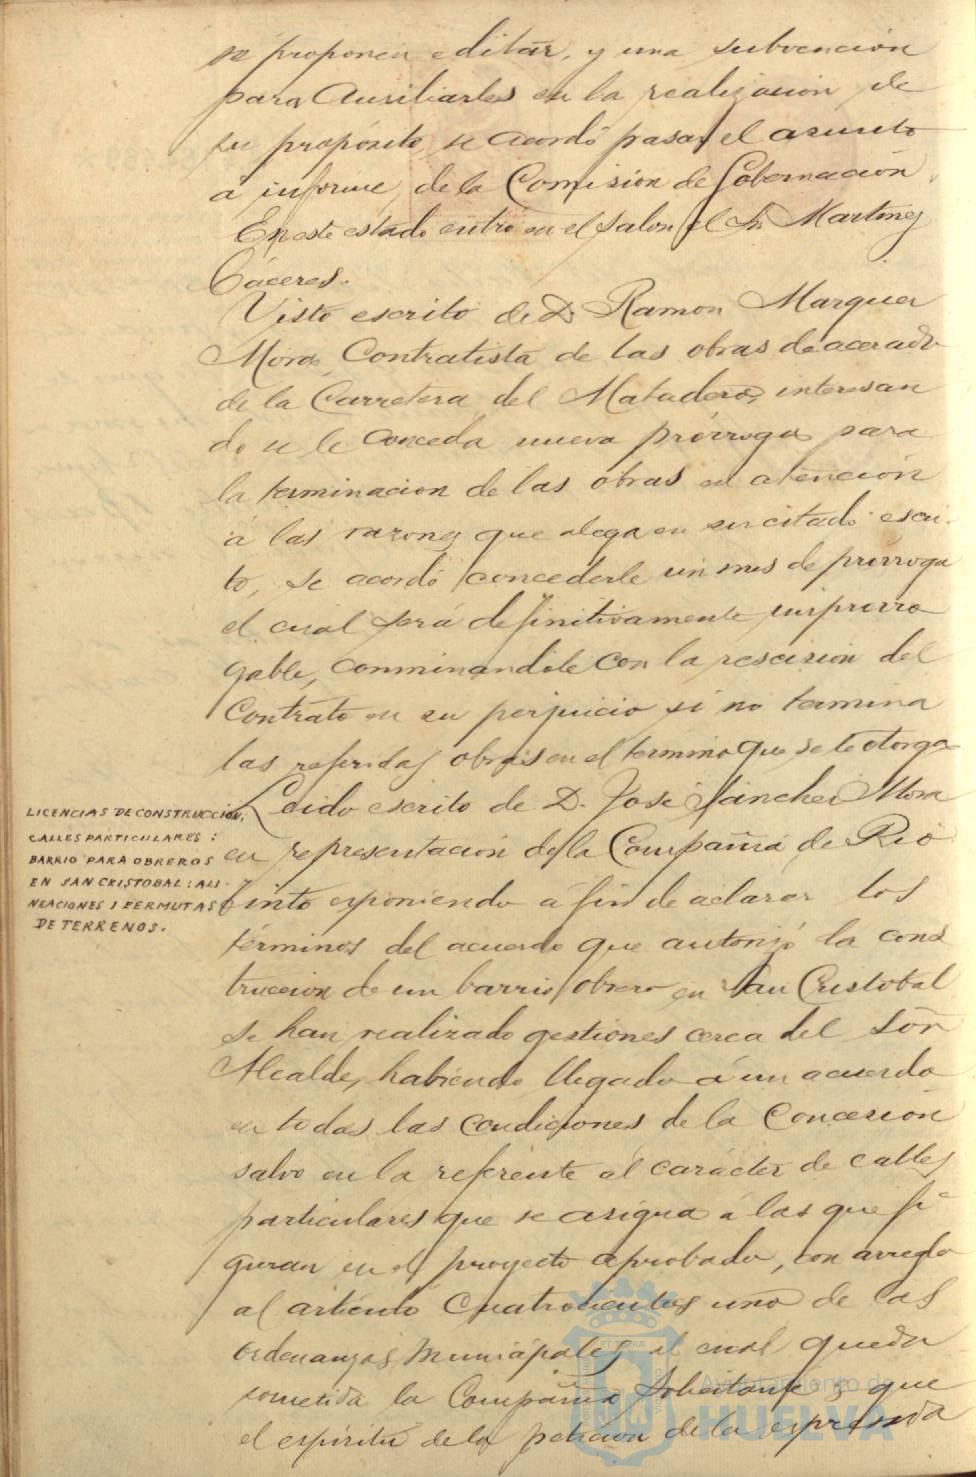 se proponen editar, y una subvención
para Auxiliarles en la realización de
su propósito, se acordó pasar el asunto
á informe, de la Comisión de Gobernación.
En este estado entró en el salon el Sr. Martinez
Cáceres.
Visto escrito de D. Ramon Marquez
Mora, Contratista de las obras de acerado
de la Carretera del Matadero, interesan
do se le conceda nueva prórroga para
la terminacion de las obras en atención
á las razones que alega en su citado escri-
to, se acordó concederle un mes de prorroga
el cual será definitivamente improrro
gable, conminandole con la rescisión del
Contrato en su perjuicio si no termina
las referidas obras en el termino que se le otorga
Leido escrito de D. José Sánchez Mora
en representación de la Compañia de Rio
Tinto exponiendo á fin de aclarar los
términos del acuerdo que autorizó la cons
truccion de un barrio obrero en San Cristobal
se han realizado gestiones cerca del Sõr
Alcalde, habiendo llegado á un acuerdo
en todas las condiciones de la Concesión
salvo en la referente al carácter de calles
particulares que se asigna á las que fi-
guran en el proyecto aprobado, con arreglo
al articulo Cuatrocientos uno de las
ordenanzas Municipales al cual queda
sometida la Compañia Solicitante y que
el espíritu de la petición de la expresada
LICENCIAS DE CONSTRUCCION,
CALLES PARTICULARES:
BARRIO PARA OBREROS
EN SAN CRISTOBAL: ALI-
NEACIONES Y PERMUTAS
DE TERRENOS.
Ayuntamiento de
HUELVA